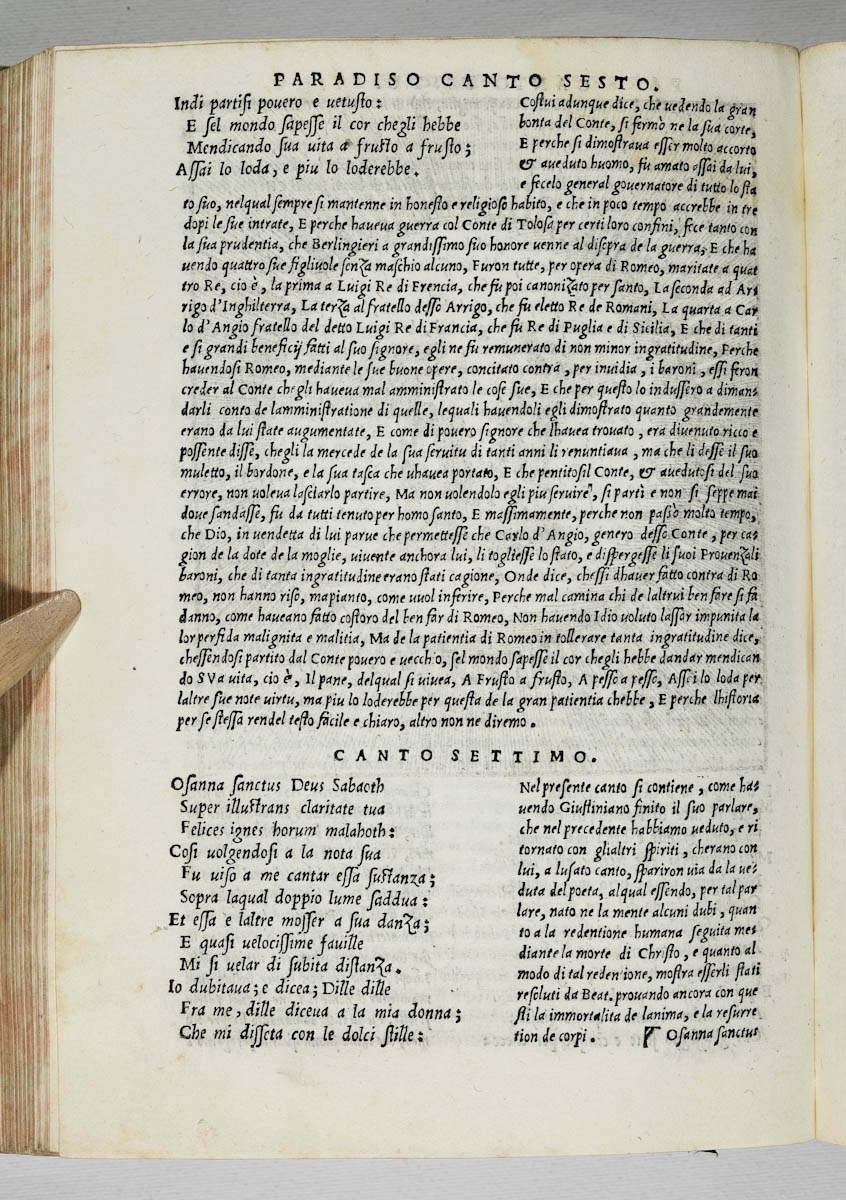 PARADISO CANTO SESTO.
Indi partisi povero e uetusto:
E sel mondo sapesse il cor chegli hebbe
Mendicando sua uita a frusto a frusto;
Assai lo loda, e piu lo loderebbe.
Costui adunque dice, che uedendo la gran
bonta del Conte, si fermò ne la sua corte,
E perche si dimostraua esser molto accorto
& aueduto huomo, fu amato assai da lui,
e fecelo general gouernatore di tutto lo sta
to suo, nelqual sempre si mantenne in honesto e religioso habito, e che in poco tempo accrebbe in tre
dopi le sue intrate, E perche haueua guerra col Conte di Tolosa per certi loro confini, fece tanto con
la sua prudentia, che Berlingieri a grandissimo suo honore uenne al disopra de la guerra, E che ha
uendo quattro sue figliuole senza maschio alcuno, Furon tutte, per opera di Romeo, maritate a quat
tro Re, cio è, la prima a Luigi Re di Francia, che fu poi canonizato per santo, La seconda ad Ar
rigo d'Inghilterra, La terza al fratello desso Arrigo, che fu eletto Re de Romani, La quarta a Car
lo d'Angio fratello del detto Luigi Re di Francia, che fu Re di Puglia e di Sicilia, E che di tanti
e si grandi beneficij fatti al suo signore, egli ne fu remunerato di non minor ingratitudine, Perche
hauendosi Romeo, mediante le sue buone opere, concitato contra, per inuidia, i baroni, essi feron
creder al Conte chegli haueua mal amministrato le cose sue, E che per questo lo indussero a diman=
darli conto de lamministratione di quelle, lequali hauendoli egli dimostrato quanto grandemente
erano da lui state augumentate, E come di pouero signore che lhauea trouato, era diuenuto ricco e
possente disse, chegli la mercede de la sua seruitu di tanti anni li renuntiaua, ma che li desse il suo
muletto, il bordone, e la sua tasca che uhauea portato, E che pentitosil Conte, & auedutosi del suo
errore, non uoleua lasciarlo partire, Ma non uolendolo egli piu seruire, si partì e non si seppe mai
doue sandasse, fu da tutti tenuto per homo santo, E massimamente, perche non passò molto tempo,
che Dio, in uendetta di lui parue che permettesse che Carlo d'Angio, genero desso Conte, per ca=
gion de la dote de la moglie, uiuente anchora lui, li togliesse lo stato, e dispergesse li suoi Prouenzali
baroni, che di tanta ingratitudine erano stati cagione, Onde dice, chessi dhauer fatto contra di Ro
meo, non hanno riso, mapianto, come uuol inferire, Perche mal camina chi de laltrui ben fare si fà
danno, come haueano fatto costoro del ben far di Romeo, Non hauendo Idio voluto lassar impunita la
lor perfida malignita e malitia, Ma de la patientia di Romeo in tollerare tanta ingratitudine dice,
chessendosi partito dal Conte pouero e uecchio, sel mondo sapesse il cor chegli hebbe dandar mendican
do SVa uita, cio è, Il pane, delqual si uiuea, A Frusto a frusto, A pesso a pesso, Assei lo loda per
laltre sue note uirtu, ma piu lo loderebbe per questa de la gran patientia chebbe, E perche lhistoria
per se stessa rendel testo facile e chiaro, altro non ne diremo.
CANTO SETTIMO.
Osanna sanctus Deus Sabaoth
Super illustrans claritate tua
Felices ignes horum malahoth:
Cosi uolgendosi a la nota sua
Fu uiso a me cantar essa sustanza;
Sopra laqual doppio lume saddua:
Et essa e laltre mosser a sua danza;
E quasi uelocissime fauille
Mi si uelar di subita distanza.
Io dubitaua; e dicea; Dille dille
Fra me, dille diceua a la mia donna;
Che mi disseta con le dolci stille:
Nel presente canto si contiene, come ha=
uendo Giustiniano finito il suo parlare,
che nel precedente habbiamo ueduto, e ri
tornato con glialtri spiriti, cherano con
lui, a lusato canto, spariron uia da la ue=
duta del poeta, al qual essendo, per tal par
lare, nato ne la mente alcuni dubi, quan
to a la redentione humana seguita me=
diante la morte di Christo, e quanto al
modo di tal redenione, mostra esserli stati
resoluti da Beat. prouando ancora con que
sti la immortalita de lanima, e la resurre
tion de corpi. Osanna sanctus